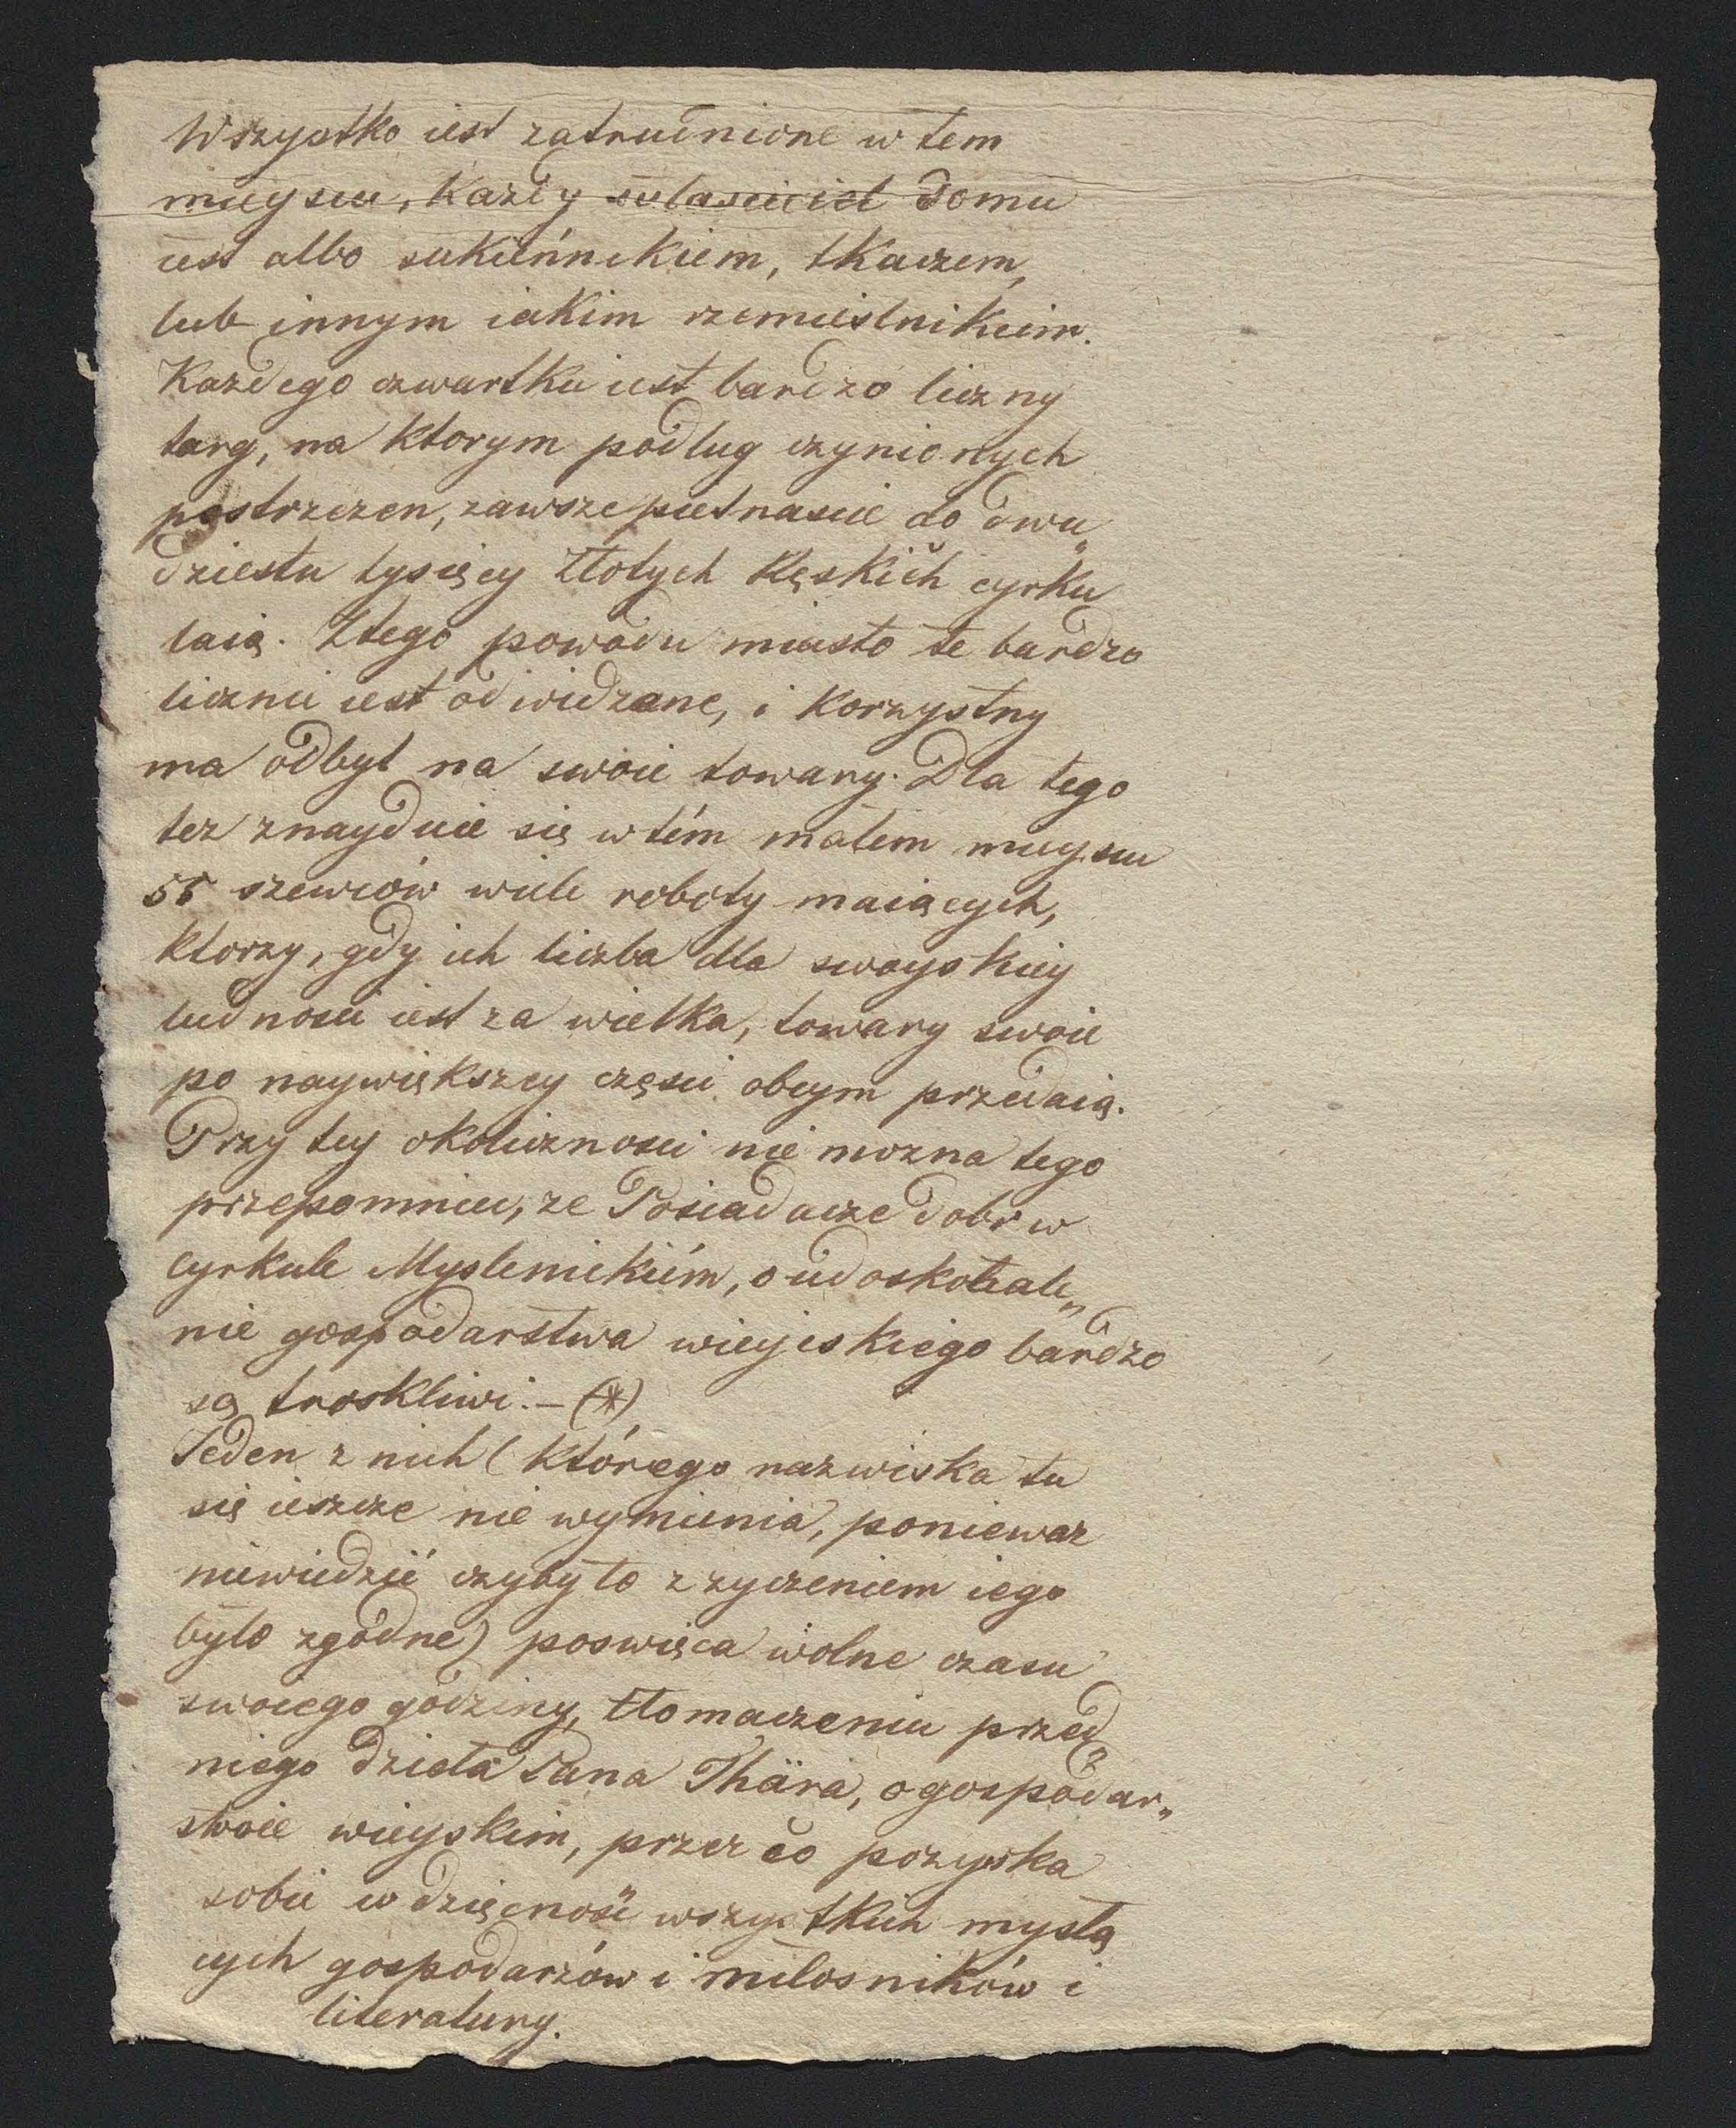 Wszystko iest zatrudnione w tem
mieyscu, Kazdy wlasciciel domu
iest albo sukiennikiem, tkaczem,
lub innym iakim rzemieslnikiem.
Kazdego czwartku iest bardzo liczny
targ, na ktorym podlug czynionych
postrzezen, zawsze pietnascie do dwu„
dziestu tysięcy Złotych Ręskich cyrku
laią. Ztego powodu miasto te bardzo
licznie iest odwidzane, i korzystny
ma odbyt na swoie towary. Dla tego
tez znayduie się w tém małem mieyscu
55 szewców wiele roboty maiących,
ktorzy, gdy ich liczba dla swoyskiey
ludnosci iest za wielka, towary swoie
po naywiększey części obcym przedaią.
Przy tey okolicznosci nie mozna tego
przepomniec, ze Posiadacze dobr w
cyrkule Myslenickiém, o udoskonale„
nie gospodarstwa wieyiskiego bardzo
są troskliwi. – (*)
Jeden z nich (którego nazwiska tu
się ieszcze nie wymienia, poniewaz
niewiedzieć czyby to z zyczeniem iego
było zgodne) poswięca wolne czasu
swoiego godziny, tłomaczeniu przed„
niego dzieła Pana Thära, o gospodar„
stwie wieyskim, przez co pozyska
sobie wdzięcność wszystkich myślą
cych gospodarzów i miłosników i
literatury.